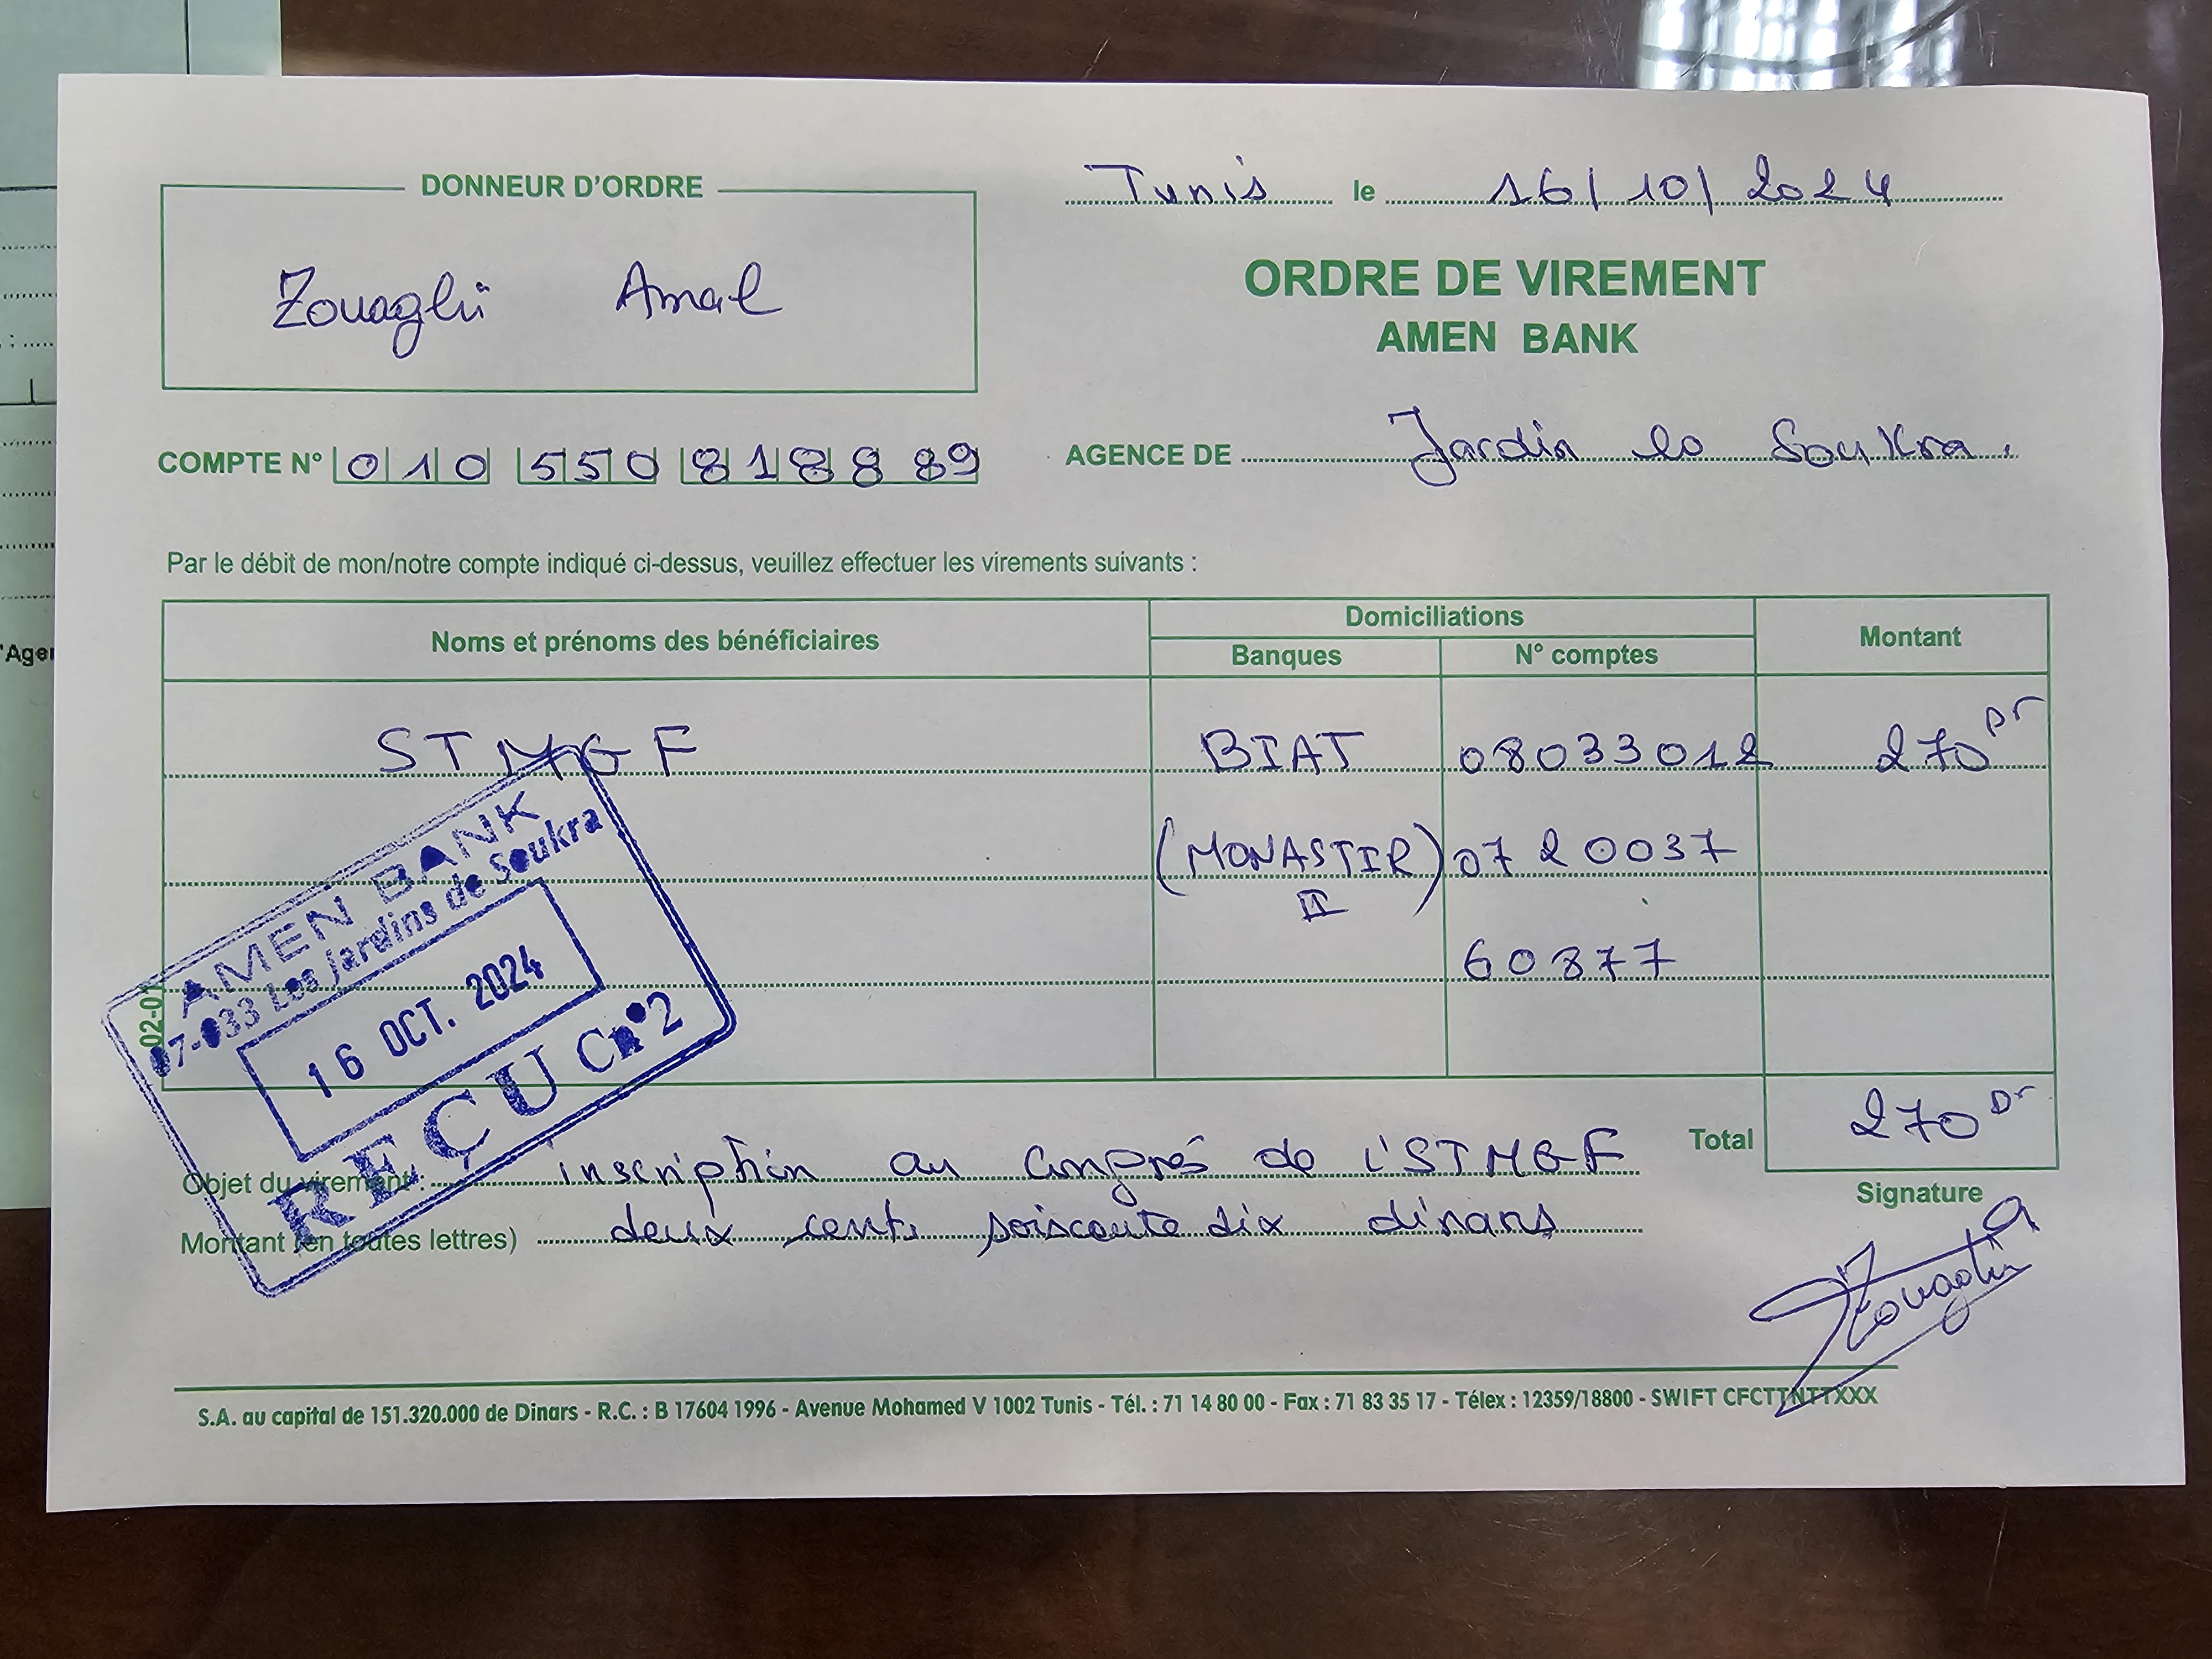 DONNEUR D'ORDRE
Zouaghi Amal
Tunis le 16/10/2024
ORDRE DE VIREMENT
AMEN BANK
COMPTE N° 010 550 8188 89
AGENCE DE Jardin de Soukra.
Par le débit de mon/notre compte indiqué ci-dessus, veuillez effectuer les virements suivants :
Noms et prénoms des bénéficiaires
Domiciliations
Banques N° comptes
Montant
STMGF BIAT 08033012 270 Dr
(MONASTIR) 07 20037
II
60877
02-0
AMEN BANK
07-033 Les Jardins de Soukra
16 OCT. 2024
REÇU Cn°2
Total 270 Dr
Objet du virement : inscription au Congrés de l'STMGF
Montant (en toutes lettres) deux cents soiscante dix dinars
Signature
Zouaghi A
S.A. au capital de 151.320.000 de Dinars - R.C. : B 17604 1996 - Avenue Mohamed V 1002 Tunis - Tél. : 71 14 80 00 - Fax : 71 83 35 17 - Télex : 12359/18800 - SWIFT CFCTTNTTXXX
'Agen